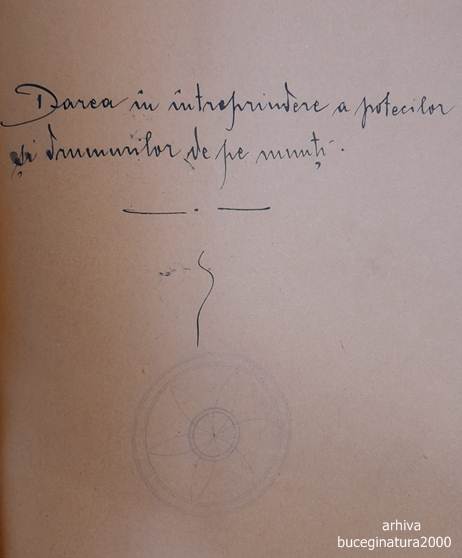 Darea în întreprindere a potecilor
și drumurilor de pe munți.
arhiva
buceginatura2000